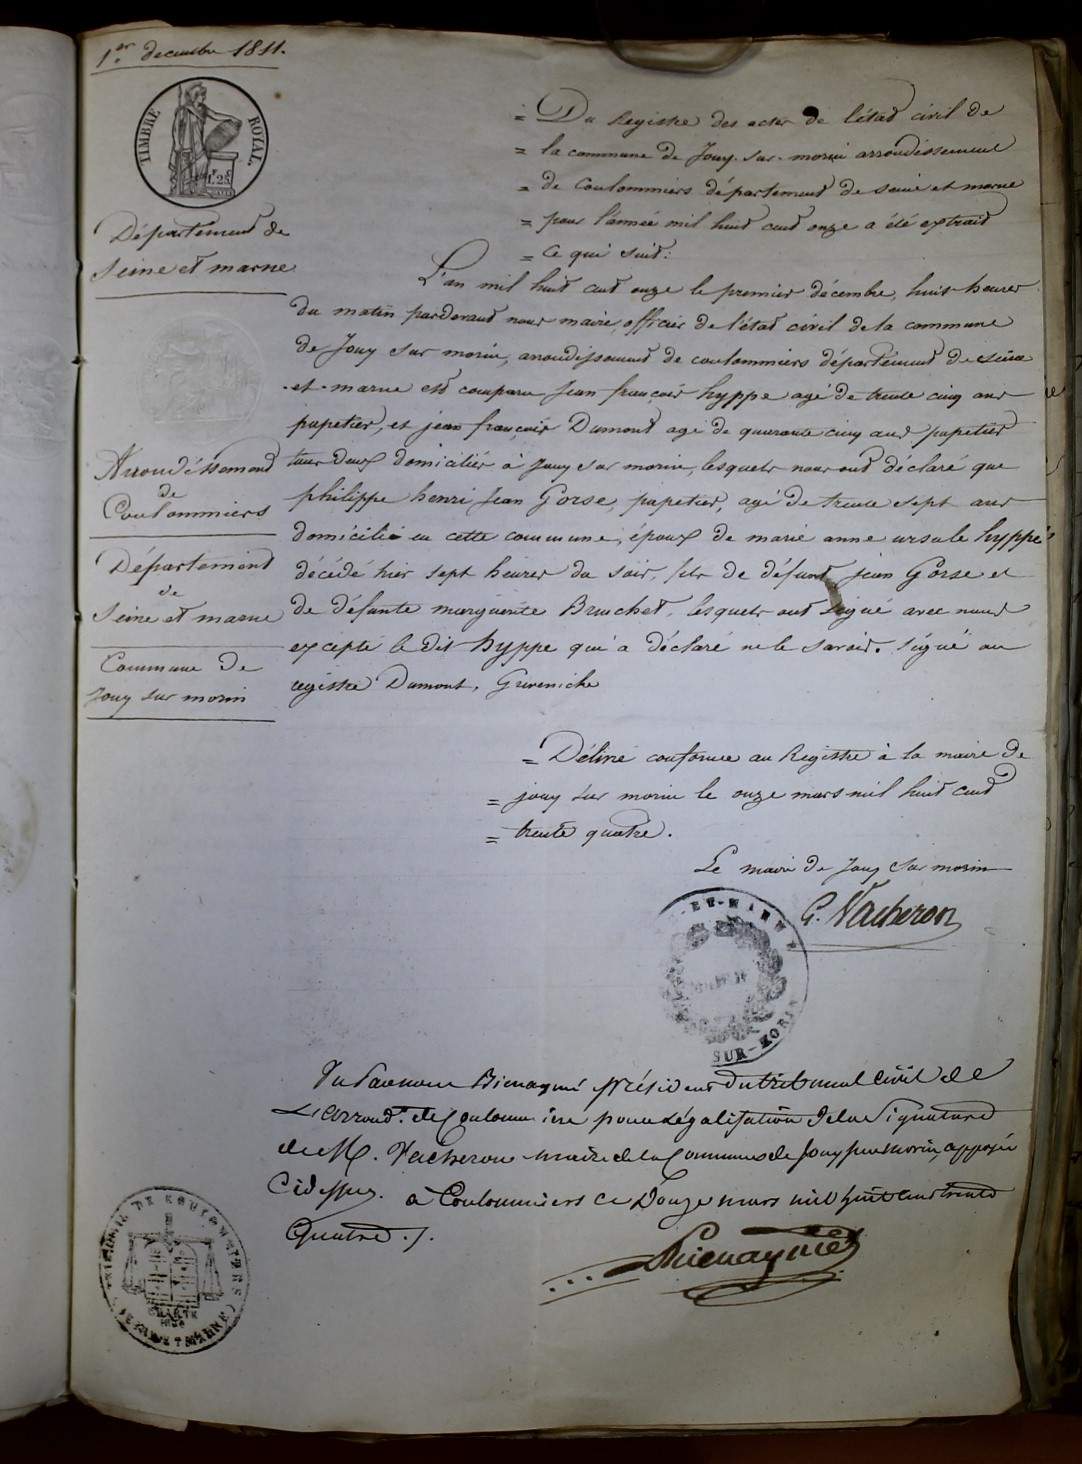 1er. decembre 1811.
TIMBRE ROYAL
1.25
Département de
Seine et marne
= Du Registre des actes de l'état civil de
= la commune de Jouy-sur-morin arrondissement
= de Coulommiers département de seine et marne
= pour l'année mil huit cent onze a été extrait
= ce qui suit:
L'an mil huit cent onze le premier décembre, huit heures
du matin pardevant nous maire, officier de l'état civil de la commune
de Jouy sur morin, arrondissement de coulommiers département de seine
et marne est comparu Jean françois hyppe agé de trente cinq ans
papetier, et jean françois Dumont agé de quarante cinq ans papetier
tous deux domiciliés à Jouy sur morin, lesquels nous ont déclaré que
philippe henri Jean Gorse, papetier, agé de trente sept ans
domicilié en cette commune, époux de marie anne ursule hyppe
décédé hier sept heures du soir, fils de défunt Jean Gorse et
de défunte marguerite Bruchet, lesquels ont signé avec nous
excepté le dit hyppe qui a déclaré ne le savoir. signé au
registre Dumont,
Arrondissement
de
Coulommiers
Département
de
Seine et marne
Commune de
Jouy sur morin
= Délivré conforme au Registre à la mairie de
= jouy sur morin le onze mars mil huit cent
= trente quatre.
Le maire de Jouy sur morin
G. Vacheron
ET-MARNE
SUR-MORIN
Vu par nous Bienaymé président du tribunal Civil de
L'arrond.t de Coulommiers pour Légalisation de la Signature
de M. Vacheron maire de la Commune de Jouy sur morin, apposée
Cidessus. à Coulommiers ce Douze mars mil huit cent trente
Quatre ./.
Bienaymé
TRIBUNAL DE COULOMMIERS
CHARTE
1830
(SEINE ET MARNE)